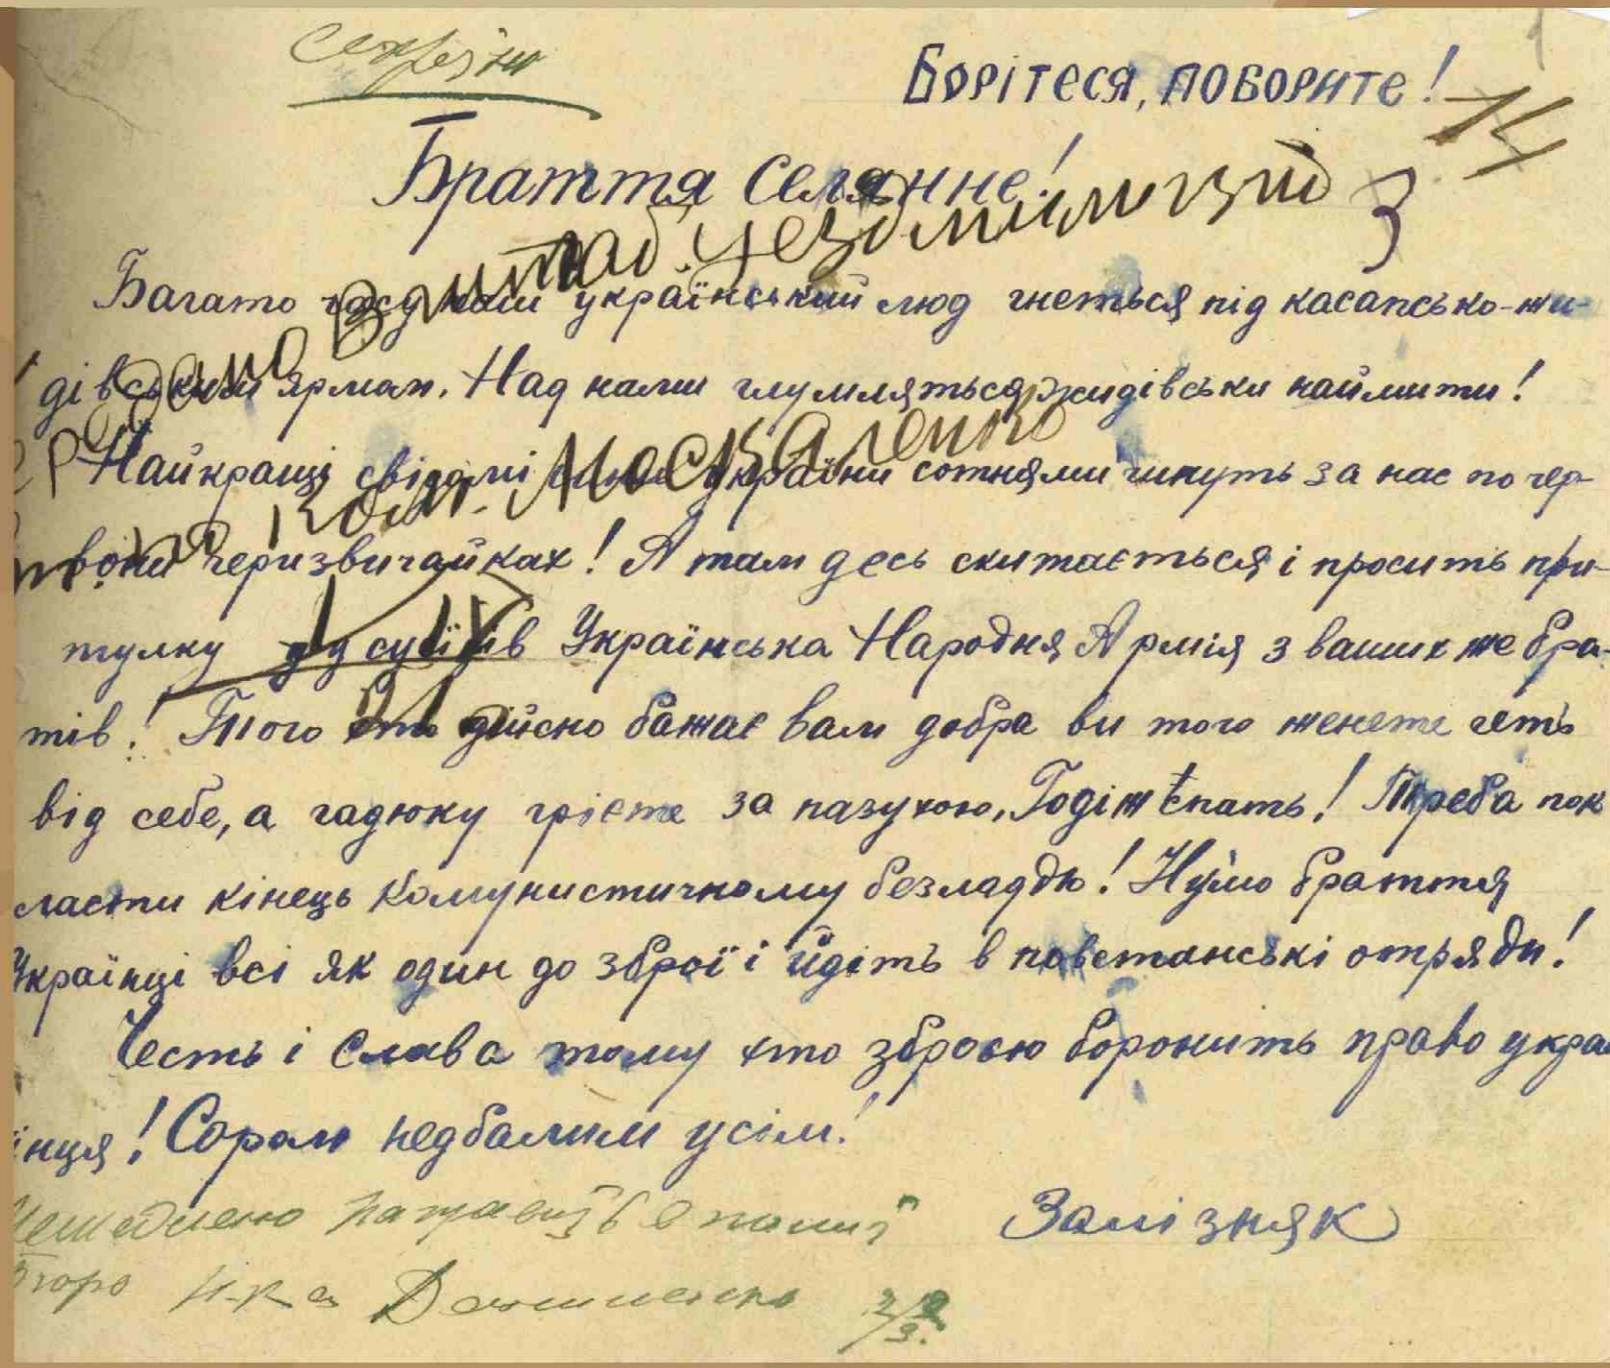 Борітеся, поборите!
14
Браття Селянне!
3
Багато часу наш український люд гнеться під касапсько-жи-
дівським ярмам. Над нами глумляться жидівськи наймити!
Найкращі свідомі сини України сотнями гинуть за нас по чер-
воних черизвичайках! А там десь скитається і просить при-
тулку у сусідів Українська Народня Армія з ваших же бра-
тів! Того хто дійсно бажає вам добра ви того женете геть
від себе, а гадюку грієте за пазухою. Годі ж спать! Треба пок
ласти кінець Комунистичному безладдю! Нумо браття
Українці всі як один до зброї і йдіть в повстанські отряди!
Честь і Слава тому хто зброєю боронить право укра
їнця! Сором недбалим усім!
Залізняк
Москаленко